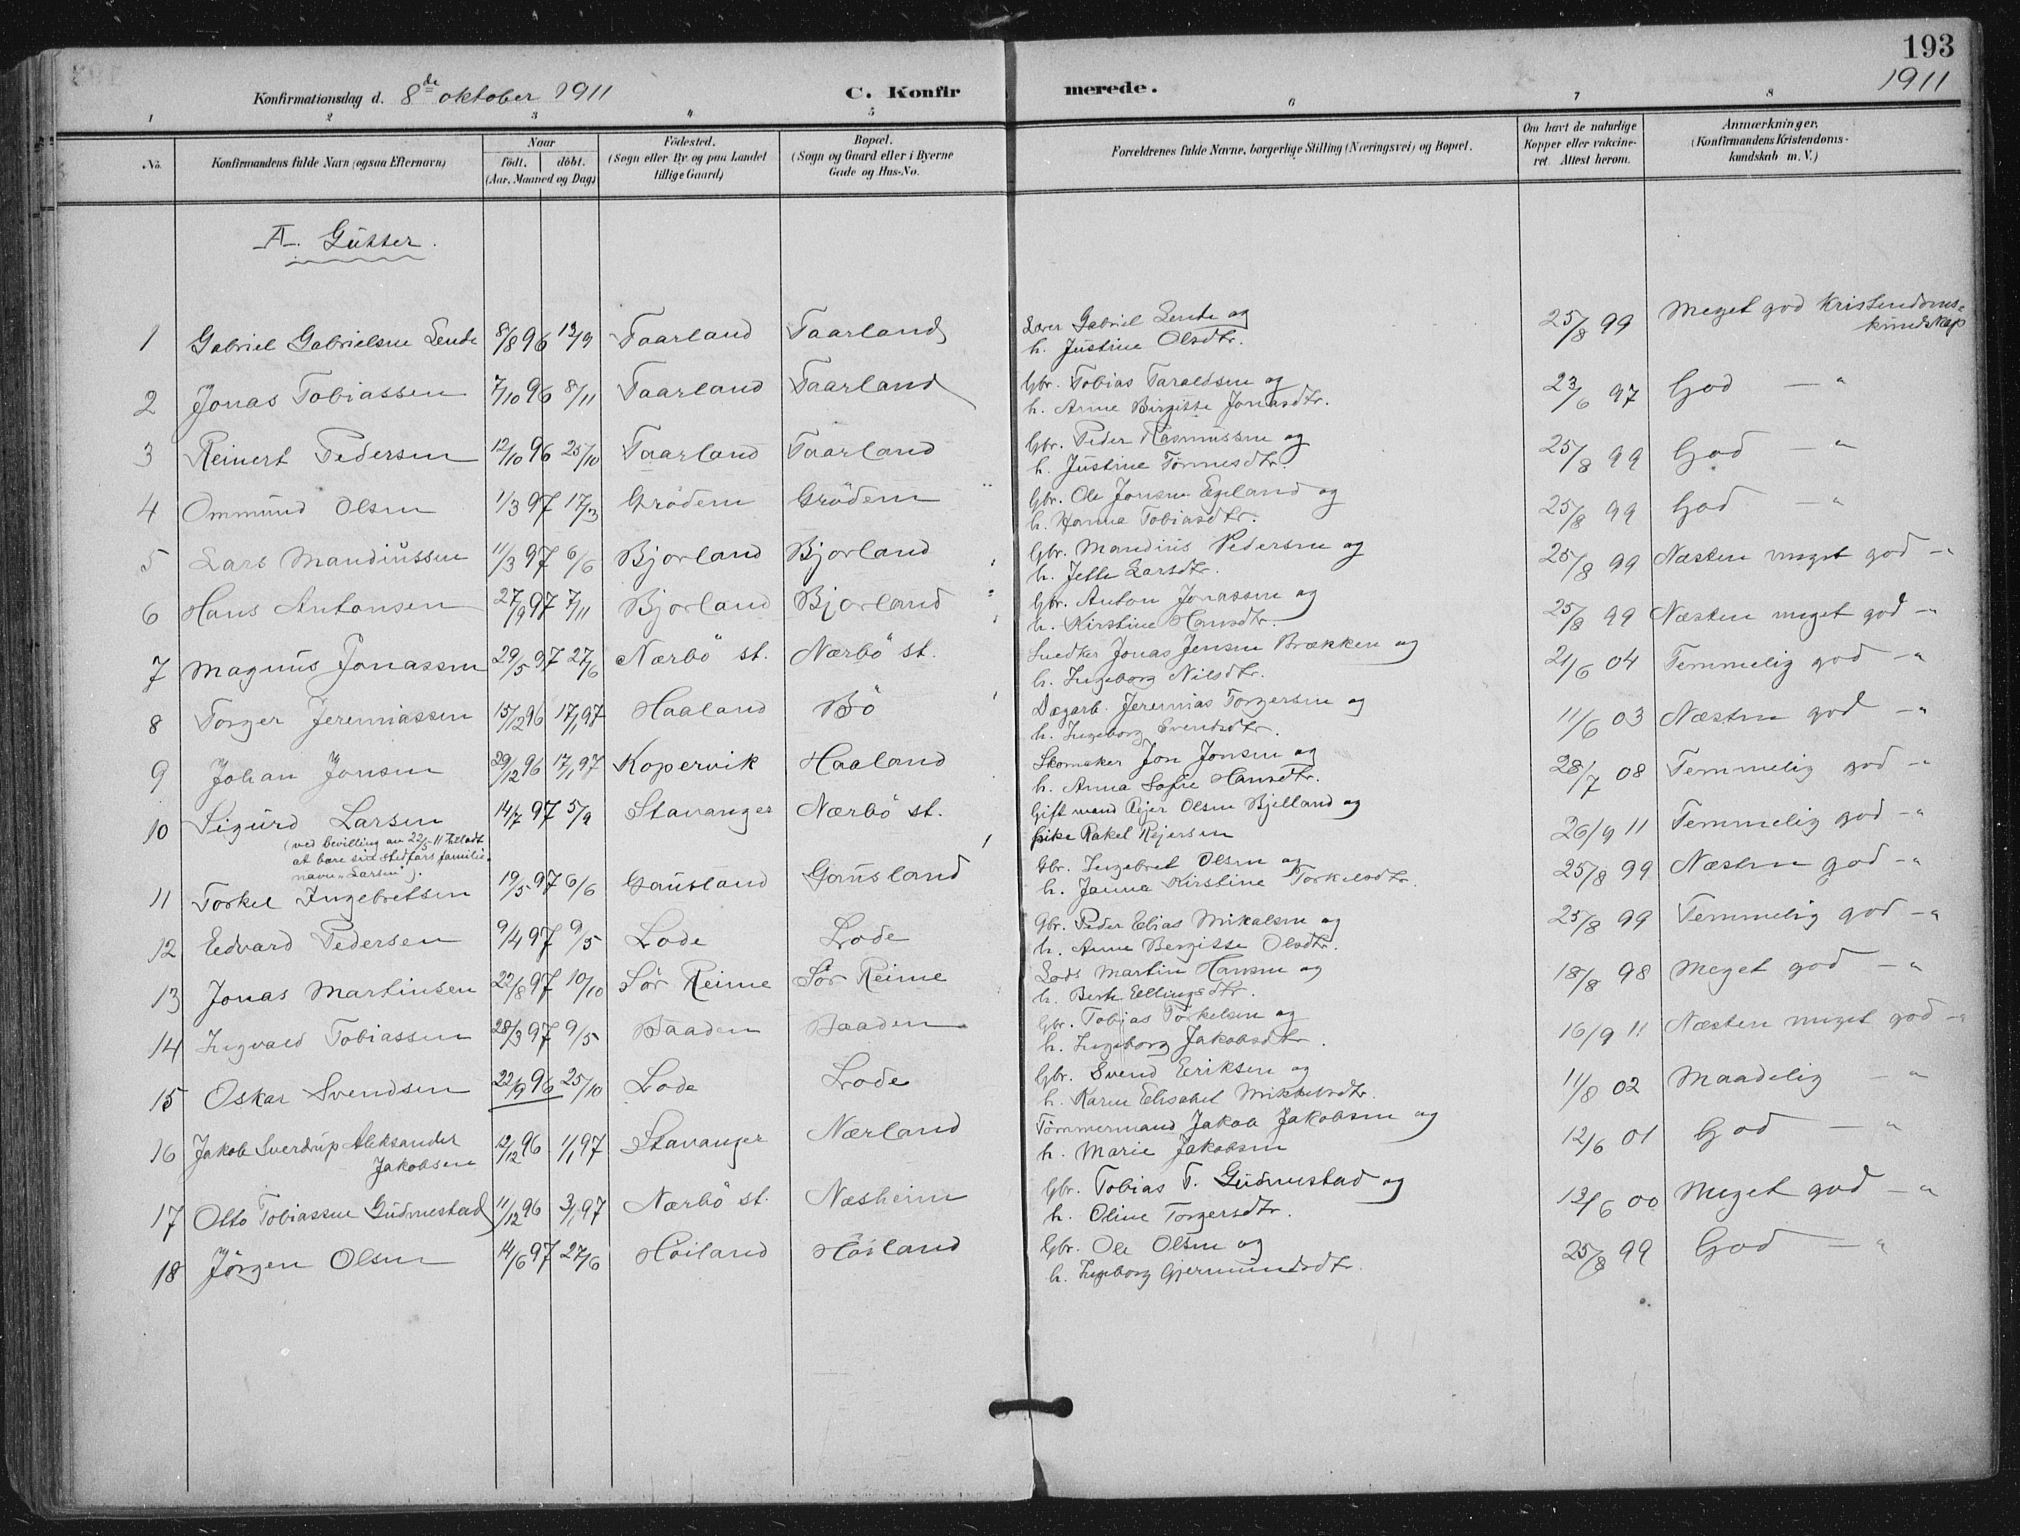 193
1911
Konfirmationsdag d. 8de oktober 1911 C. Konfirmerede.
1 2 3 4 5 6 7 8
No. Konfirmandens fulde Navn (ogsaa Efternavn) Naar født. døbt. (Aar, Maaned og Dag) Fødested. (Sogn eller By og paa Landet tillige Gaard) Bopæl. (Sogn og Gaard eller i Byerne Gade og Hus-No. Forældrenes fulde Navne, borgerlige Stilling (Næringsvei) og Bopæl. Om havt de naturlige Kopper eller vakcineret. Attest herom. Anmærkninger. (Konfirmandens Kristendomskundskab m. V.)
A. Gutter.
1 Gabriel Gabrielsen Lende 8/8 96 13/9 Taarland Taarland Lærer Gabriel Lende og h. Justine Olsdtr. 25/8 99 Meget god Kristendomskundskap
2 Jonas Tobiassen 7/10 96 8/11 Taarland Taarland Gbr. Tobias Taraldsen og h. Anne Birgitte Jonasdtr. 23/6 97 God — "
3 Reinert Pedersen 12/10 96 25/10 Taarland Taarland Gbr. Peder Rasmussen og h. Justine Tønnesdtr. 25/8 99 God — "
4 Ommund Olsen 1/3 97 17/3 Grödem Grödem Gbr. Ole Jonsen Egeland og h. Hanna Tobiasdtr. 25/8 99 God — "
5 Lars Mandiussen 11/3 97 6/6 Bjorland Bjorland Gbr. Mandius Pedersen og h. Jette Larsdtr. 25/8 99 Næsten meget god — "
6 Hans Antonsen 27/9 97 7/11 Bjorland Bjorland Gbr. Anton Jonassen og h. Kirstine Hansdtr. 25/8 99 Næsten meget god — "
7 Magnus Jonassen 29/5 97 27/6 Nærbö st. Nærbö st. Snedker Jonas Jensen Brækken og h. Ingeborg Nilsdtr. 21/6 04 Temmelig god — "
8 Torger Jeremiassen 15/12 96 17/1 97 Haaland Bö Dagarb. Jeremias Torgersen og h. Ingeborg Svendsdtr. 11/6 03 Næsten god — "
9 Johan Jonsen 29/12 96 17/1 97 Kopervik Haaland Skomaker Jon Jonsen og h. Anna Sofie Hansdtr. 28/7 08 Temmelig god — "
10 Sigurd Larsen 14/7 97 5/9 Stavanger Nærbö st. Gift mand Rejer Olsen Bjelland og pike Rakel Rejersen 26/9 11 Temmelig god — "
(ved bevilling av 22/5-11 tilladt
at bære sin stedfars familie-
navn "Larsen").
11 Torkel Ingebretsen 19/5 97 6/6 Gausland Gausland Gbr. Ingebret Olsen og h. Janna Kirstine Torkelsdtr. 25/8 99 Næsten god — "
12 Edvard Pedersen 9/4 97 9/5 Lode Lode Gbr. Peder Elias Mikalsen og h. Anne Bergitte Olsdtr. 25/8 99 Temmelig god — "
13 Jonas Martinsen 22/8 97 10/10 Sör Reime Sör Reime Lods Martin Hansen og h. Berte Ellingsdtr. 18/8 98 Meget god — "
14 Ingvald Tobiassen 28/3 97 9/5 Baaden Baaden Gbr. Tobias Torkelsen og h. Ingeborg Jakobsdtr. 16/9 11 Næsten meget god — "
15 Oskar Svendsen 22/9 96 25/10 Lode Lode Gbr. Svend Eriksen og h. Karen Elisabet Mikkelsdtr. 11/8 02 Maadelig — "
16 Jakob Sverdrup Aleksander Jakobsen 12/12 96 1/1 97 Stavanger Nærland Tømmermand Jakob Jakobsen og h. Marie Jakobsen 12/6 01 God — "
17 Otto Tobiassen Gudmestad 11/12 96 3/1 97 Nærbö st. Næsheim Gbr. Tobias T. Gudmestad og h. Oline Torgersdtr. 12/6 00 Meget god — "
18 Jörgen Olsen 14/6 97 27/6 Höiland Höiland Gbr. Ole Olsen og h. Ingeborg Gjermundsdtr. 25/8 99 God — "